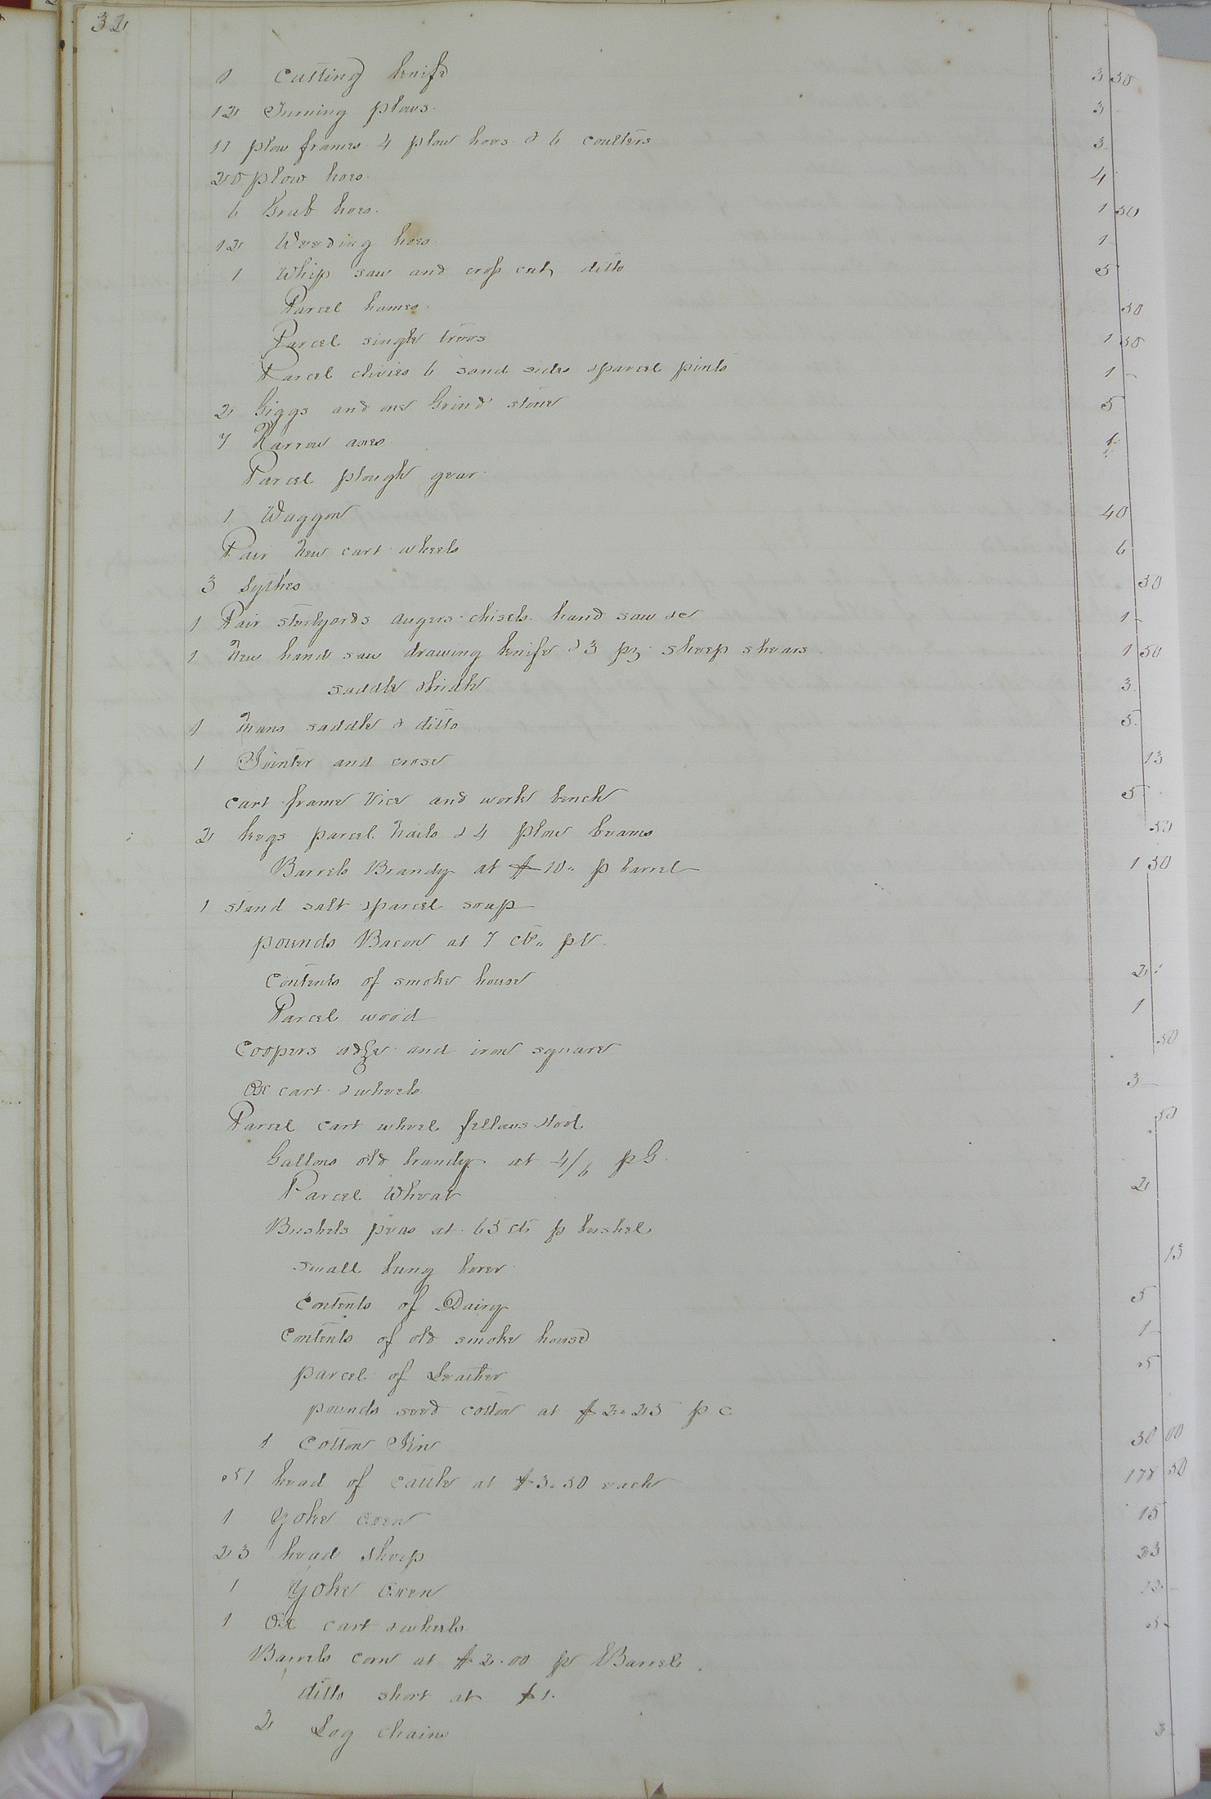 32
1 Cutting knife 3 50
12 Turning plows 3
11 plow frames 4 plow hoes & 6 coulters 3
20 plow hoes 4
6 Grub hoes 1 50
12 Weeding hoes 1
1 Whip saw and cross cut ditto 5
Parcel hames 50
Parcel single trees 1 50
Parcel clivies 6 sand sides & parcel pints 1 -
2 Giggs and one Grind stone 5
7 Narrow axes
Parcel plough gear
1 Waggon 40
Pair New cart wheels 6
3 Sythes 50
1 Pair stockyards augers chisels hand saw &c 1 -
1 New hand saw drawing knife & 3 pr sheep shears 1 50
saddle & bridle 3
1 Mans saddle & ditto 5
1 Jointer and crose 13
Cart frame Vice and work bench 5
2 kegs parcel Nails & 4 plow beams 50
Barrels Brandy at $10.. p barrel 1 50
1 stand salt & parcel soap
pounds Bacon at 7 cts. pr
Contents of smoke house 2
Parcel wood 1
Coopers adze and iron square 50
Ox cart & wheels 3
Parcel cart wheel fellows & tool 50
Gallons old brandy at 4/6 p G
Parcel Wheat 2
Bushels peas at 65 cts p bushel
small bung borer 13
Contents of Dairy 5
Contents of old smoke house 1 -
parcel of Leather 5
pounds seed cotton at $2.25 p C
1 Cotton Gin 50 00
51 head of cattle at $3.50 each 178 50
1 Yoke oxen 15
23 head sheep 23
1 Yoke oxen
1 Ox cart & wheels 5 -
Barrels corn at $2.00 pr Barrel
ditto short at $1.
2 Log chains 3